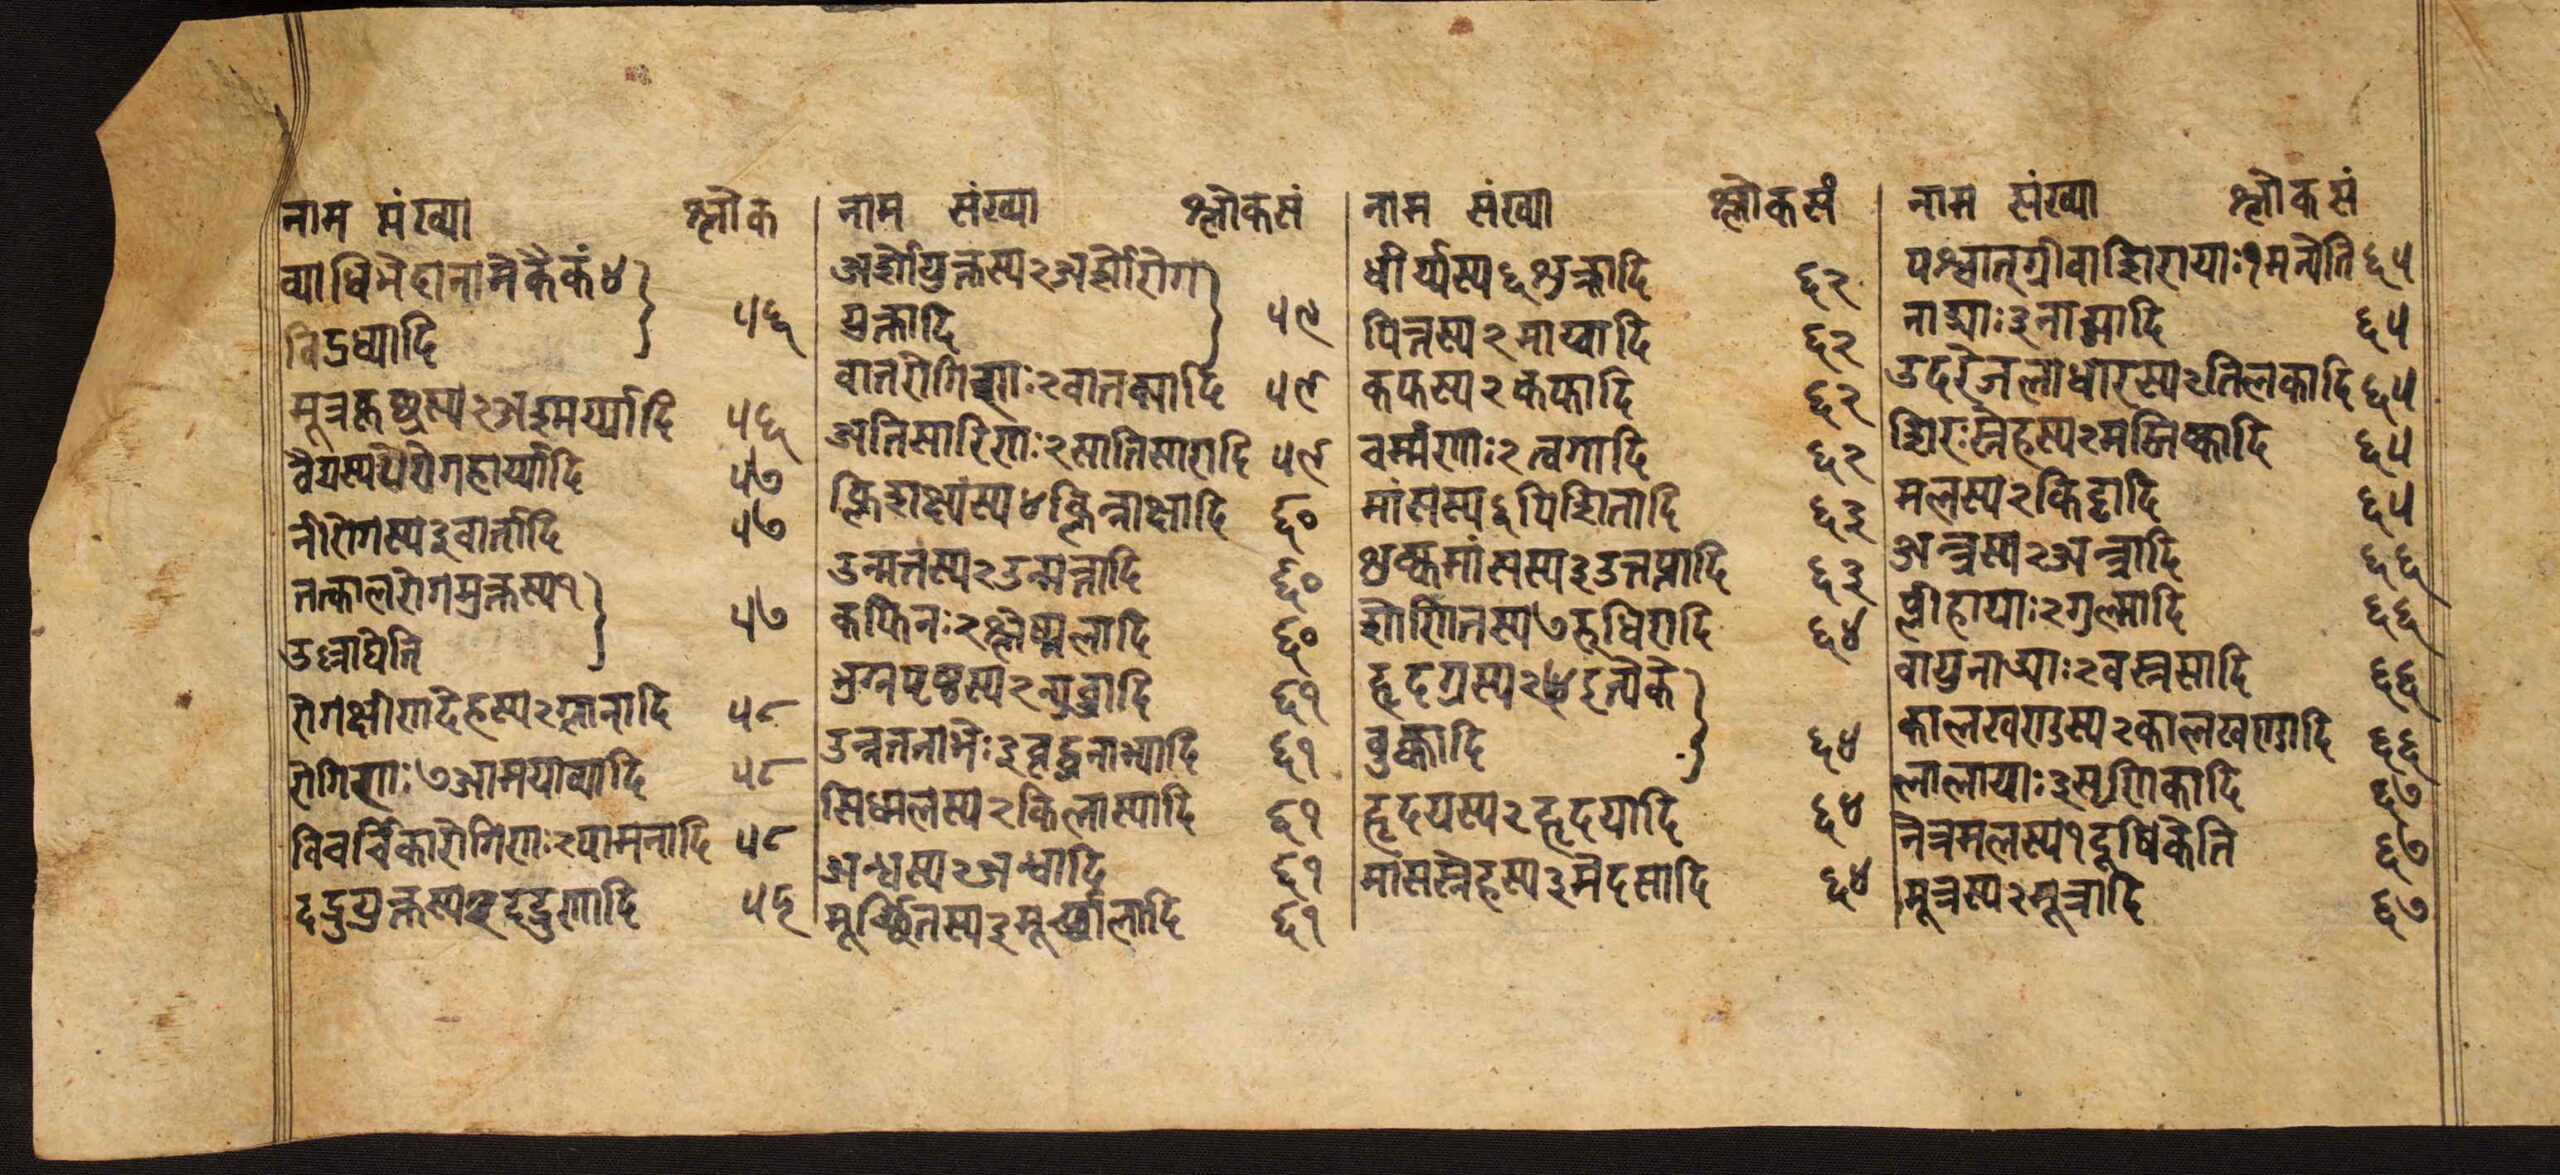 नाम संख्या श्लोक
व्याधिभेदानामेकैकं४
विद्रध्यादि ५६
मूत्रकृछ्रस्य२अश्मर्य्यादि ५६
वैद्यस्य५रोगहार्य्यादि ५७
नीरोगस्य३वार्तादि ५७
तत्कालरोगमुक्तस्य१
उल्लाघेति ५७
रोगक्षीणदेहस्य२ग्लानादि ५८
रोगिणः७आमयाव्यादि ५८
विचर्चिकारोगिणः२पामनादि ५८
दद्रुयुक्तस्य२दद्रुणादि ५९
नाम संख्या श्लोकसं
अर्शोयुक्तस्य२अर्शोरोग
युक्तादि ५९
वातरोगिणः२वातक्यादि ५९
अतिसारिणः२सातिसारादि ५९
क्लिन्नाक्षादि ६०
उन्मत्तस्य२उन्मत्तादि ६०
कफिनः२श्लेष्मलादि ६०
भुग्नपृष्ठस्य२न्युब्जादि ६१
उन्नतनाभेः३वृद्धनाभ्यादि ६१
सिध्मलस्य२किलास्यादि ६१
अन्धस्य२अन्धादि ६१
मूर्च्छितस्य३मूर्च्छालादि ६१
नाम संख्या श्लोकसं
वीर्य्यस्य६शुक्रादि ६२
पित्तस्य२माय्वादि ६२
कफस्य२कफादि ६२
चर्म्मणः२त्वगादि ६२
मांसस्य६पिशितादि ६३
शुष्कमांसस्य३उत्तप्तादि ६३
शोणितस्य७रूधिरादि ६४
हृदग्रस्य२४इत्येके
वुक्कादि ६४
हृदयस्य२हृदयादि ६४
मांसस्नेहस्य३मेदसादि ६४
नाम संख्या श्लोकसं
पश्चात्ग्रीवाशिरायाः१मन्येति ६५
नाड्याः३नाड्यादि ६५
उदरेजलाधारस्य२तिलकादि ६५
शिरःस्नेहस्य२मस्तिष्कादि ६५
मलस्य२किट्टादि ६५
अन्त्रस्य२अन्त्रादि ६६
प्लीहायाः२गुल्मादि ६६
वायुनाड्याः२वस्नसादि ६६
कालखण्डस्य२कालखण्डादि ६६
लालायाः३सृणिकादि ६७
नेत्रमलस्य१दूषिकेति ६७
मूत्रस्य२मूत्रादि ६७